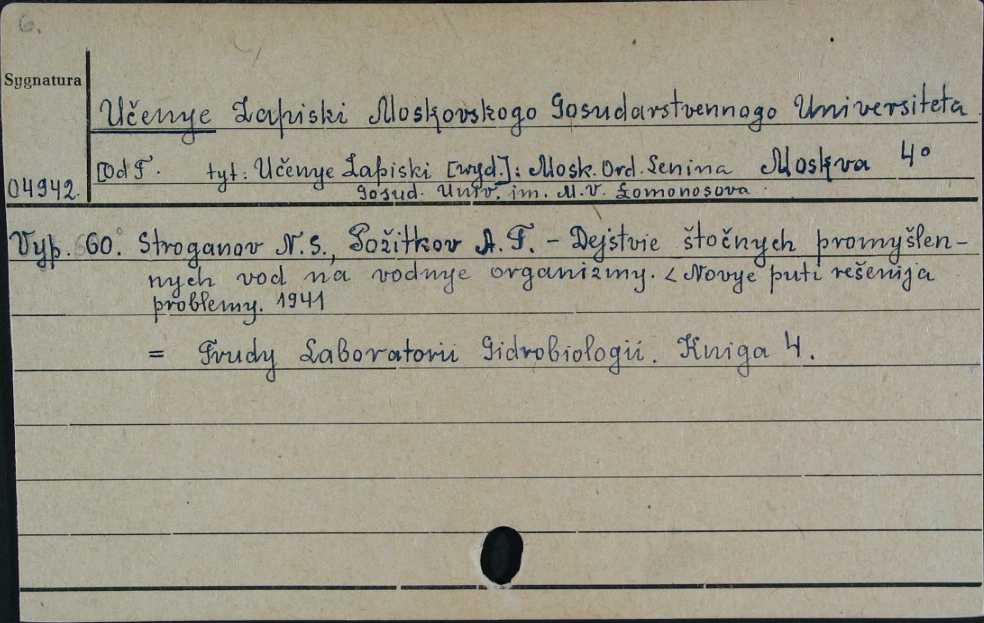 6.
Sygnatura
Učenye Zapiski Moskovskogo Gosudarstvennogo Universiteta
[Od T. tyt: Učenye Zapiski [wyd.]: Mosk. Ord. Lenina Moskva 4°
04942. Gosud. Univ. im. M. V. Lomonosova.
Vyp. 60. Stroganov N. S., Požitkov A. T. - Dejstvie štočnych promyšlen-
nych vod na vodnye organizmy. < Novye puti rešenija
problemy. 1941
= Trudy Laboratorii Gidrobiologii. Kniga 4.